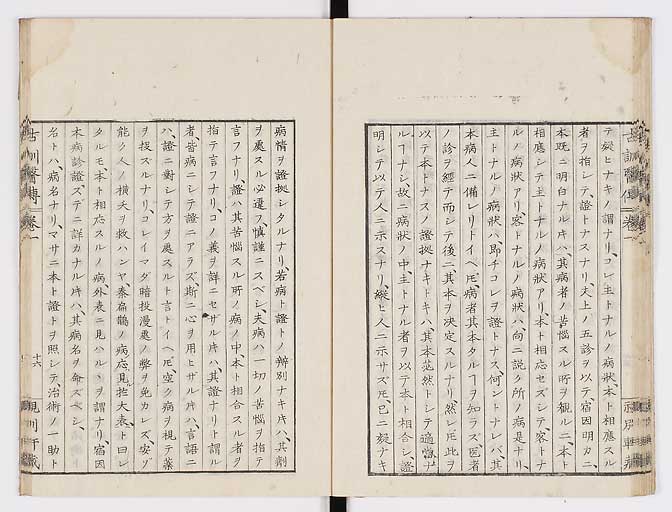 テ疑ヒナキノ謂ナリ、コレ主トナルノ病狀、本ト相應スル
者ヲ指シテ、證トナスナリ、夫上ノ五診ヲ以テ、宿因明カニ、
本既ニ明白ナル𪜈ハ、其病者ノ苦惱スル所ヲ觀ルニ、本ト
相應シテ主トナルノ病狀アリ、本ト相應セズシテ、客トナ
ルノ病狀アリ、客トナルノ病狀ハ、向ニ説ク所ノ病是ナリ、
主トナルノ病狀ハ、即チコレヲ證トナス、何ントナレバ、其
本病人ニ備レリトイヘ𪜈、病者其本タルヿヲ知ラズ、医者
ノ診ヲ經テ而シテ後ニ其本ヲ決定スルナリ、然レ𪜈此ヲ
以テ本トナスノ證拠ナキトキハ、其本茫然トシテ適當ナ
ルヿナシ、故ニ病狀ノ中、主トナル者ヲ以テ本ト相合シ、證
明シテ以テ人ニ示スナリ、縱ヒ人ニ示サズ𪜈、已ニ疑ナキ
病情ヲ證拠シタルナリ、若病ト證トノ辨別ナキ𪜈ハ、其劑
ヲ處スル必違フ、慎謹ニスベシ、夫病ハ一切ノ苦惱ヲ指テ
言フナリ、證ハ其苦惱スル所ノ病ノ中、本ト相合スル者ヲ
指テ言フナリ、コノ義ヲ詳ニセザル𪜈ハ、其證ナリト謂ル
者、皆病ニシテ證ニアラズ、斯ニ心ヲ用ヒザル𪜈ハ、言語ニ
ハ、證ニ對シテ方ヲ處スルト言トイヘ𪜈、空ク病ヲ視テ藥
ヲ投スルナリ、コレイマダ暗投漫處ノ弊ヲ免カレズ、安ゾ
能ク人ノ横夭ヲ救ハンヤ、秦扁鵲ノ病應見於大表ト曰レ
タルモ、本ト相應スルノ病、外表ニ見ハルヽヲ謂ナリ、宿因
本病診證、ズデニ詳カナル𪜈ハ、其病名ヲ命ズベシ、
名トハ、病名ナリ、マサニ本ト證トヲ照シテ、治術ノ一助ト
古訓醫傳 卷一
十六